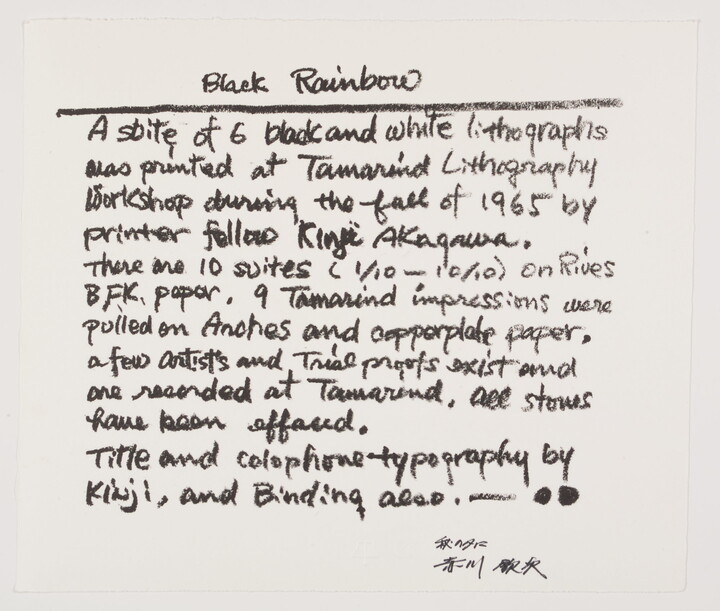 Black Rainbow
A suite of 6 black and white lithographs
was printed at Tamarind Lithography
Workshop during the fall of 1965 by
printer fellow Kinji Akagawa.
There are 10 suites (1/10 — 10/10) on Rives
B.F.K. paper. 9 Tamarind impressions were
pulled on Arches and copperplate paper.
a few artist's and Trial proofs exist and
are recorded at Tamarind. All stones
have been effaced.
Title and colophone typography by
Kinji, and Binding also. —
秋の夕に
赤川